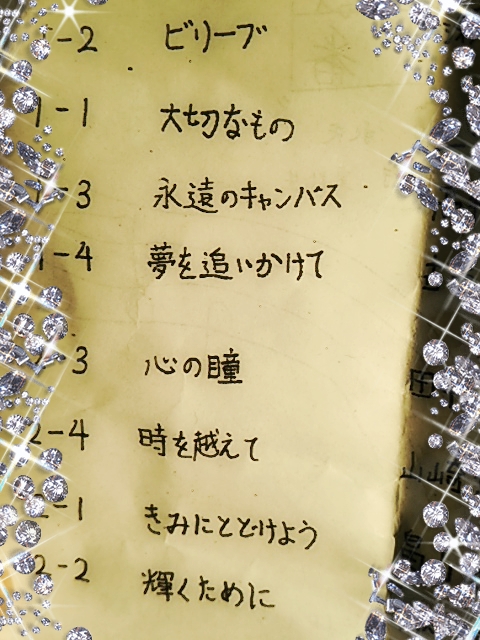 1-2 ビリーブ
1-1 大切なもの
1-3 永遠のキャンバス
1-4 夢を追いかけて
2-3 心の瞳
2-4 時を越えて
2-1 きみにとどけよう
2-2 輝くために